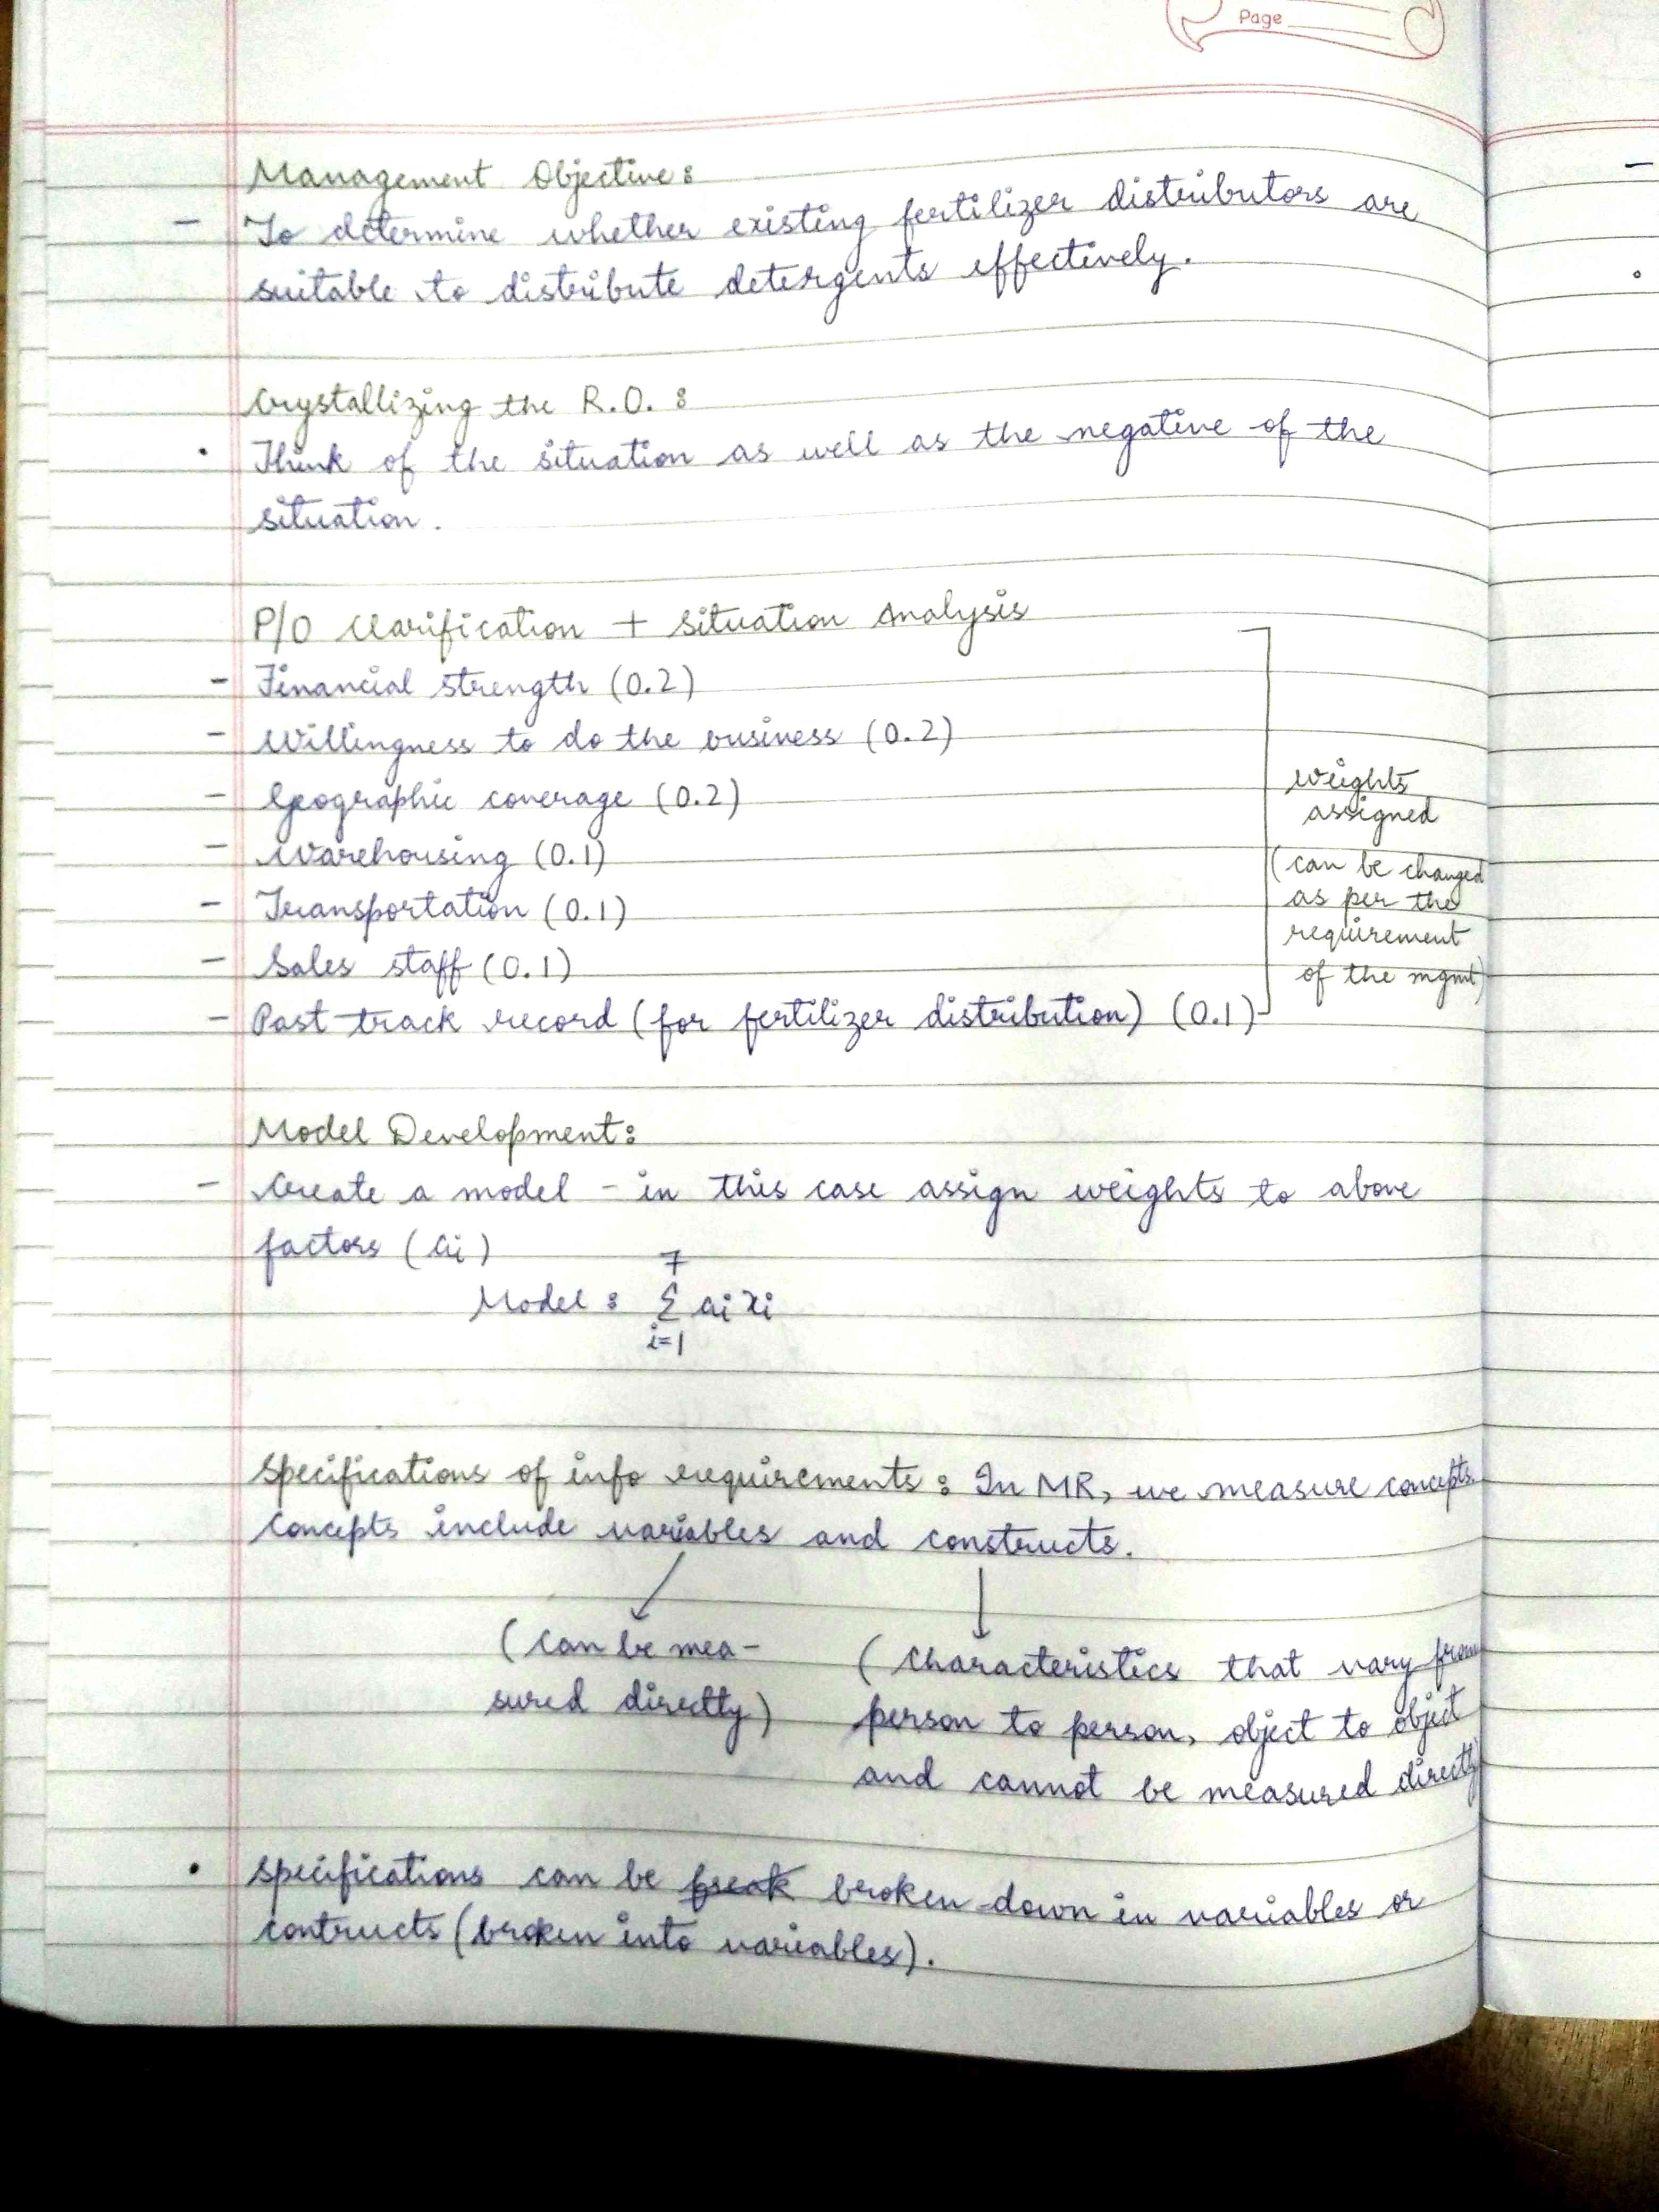 Page
Management Objective:
- To determine whether existing fertilizer distributors are
suitable to distribute detergents effectively.
Crystallizing the R.O. :
• Think of the situation as well as the negative of the
situation.
P/O Clarification + Situation Analysis
- Financial strength (0.2)
- Willingness to do the business (0.2)
- Geographic coverage (0.2)
- Warehousing (0.1)
- Transportation (0.1)
- Sales staff (0.1)
- Past track record (for fertilizer distribution) (0.1)
weights
assigned
(can be changed
as per the
requirement
of the mgmt)
Model Development:
- Create a model - in this case assign weights to above
factors (ai)
7
Model : Σ ai xi
i=1
Specifications of info requirements : In MR, we measure concepts.
Concepts include variables and constructs.
(Can be mea-
sured directly)
(Characteristics that vary from
person to person, object to object
and cannot be measured directly)
• Specifications can be break broken down in variables or
contructs (broken into variables).